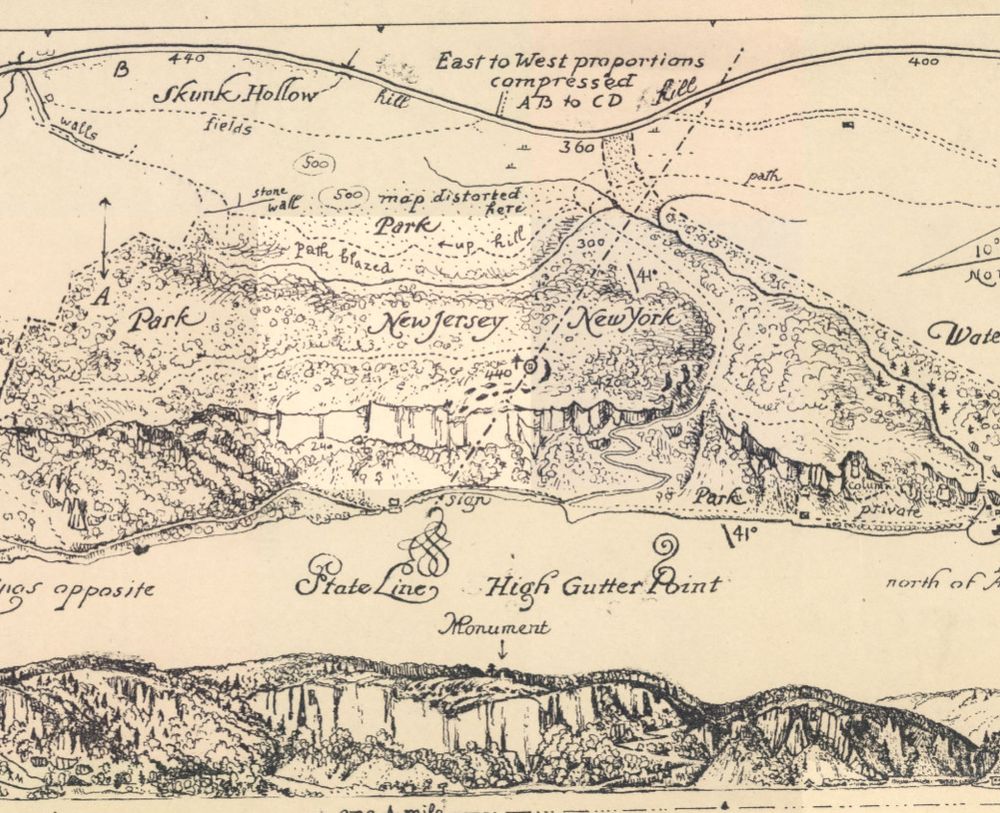 B
440
East to West proportions
compressed
AB to CD
hill
400
Skunk Hollow
hill
walls
fields
360
500
500
stone
wall
map distorted
here
path
Park
up hill
Path blazed
300
10
41°
A
Park
New Jersey
New York
Wate
440
420
240
column
sign
Park
private
41°
opposite
State Line
High Gutter Point
north of
Monument